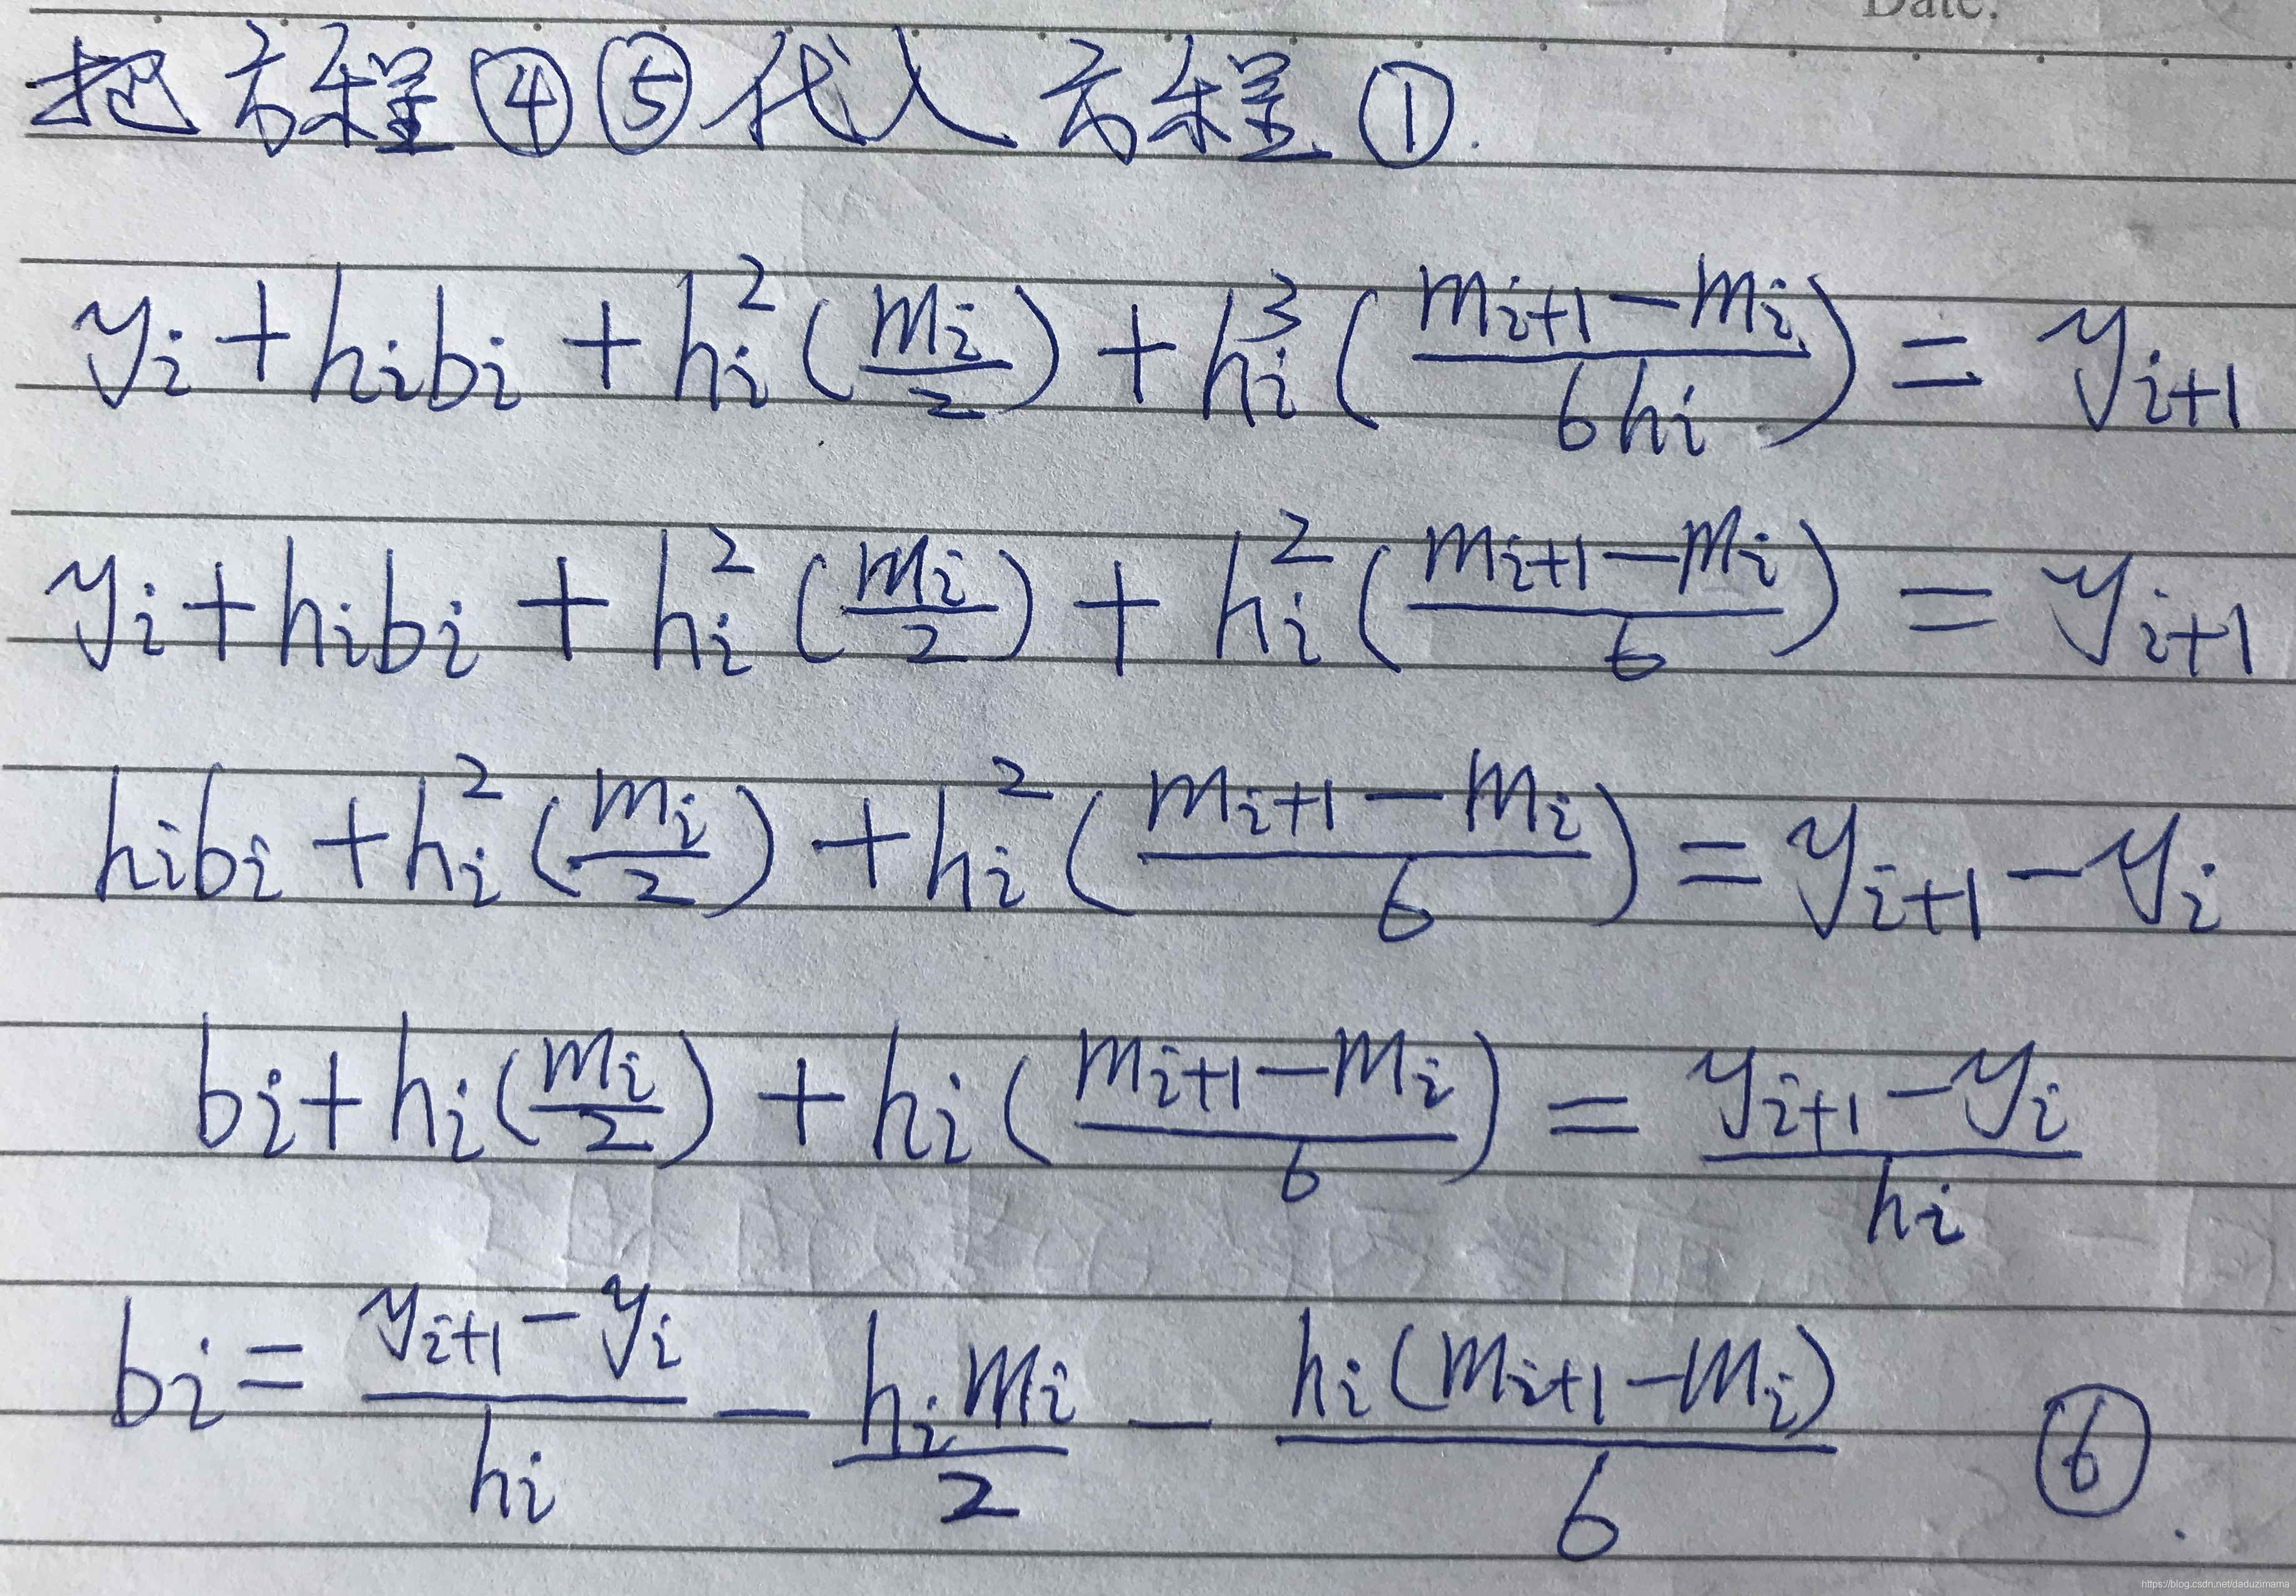 Date.
把方程④⑤代入方程①.
y_i + h_i b_i + h_i^2 (m_i/2) + h_i^3 ((m_{i+1} - m_i)/(6h_i)) = y_{i+1}
y_i + h_i b_i + h_i^2 (m_i/2) + h_i^2 ((m_{i+1} - m_i)/6) = y_{i+1}
h_i b_i + h_i^2 (m_i/2) + h_i^2 ((m_{i+1} - m_i)/6) = y_{i+1} - y_i
b_i + h_i (m_i/2) + h_i ((m_{i+1} - m_i)/6) = (y_{i+1} - y_i)/h_i
b_i = (y_{i+1} - y_i)/h_i - (h_i m_i)/2 - (h_i (m_{i+1} - m_i))/6 ⑥.
https://blog.csdn.net/daduzimama